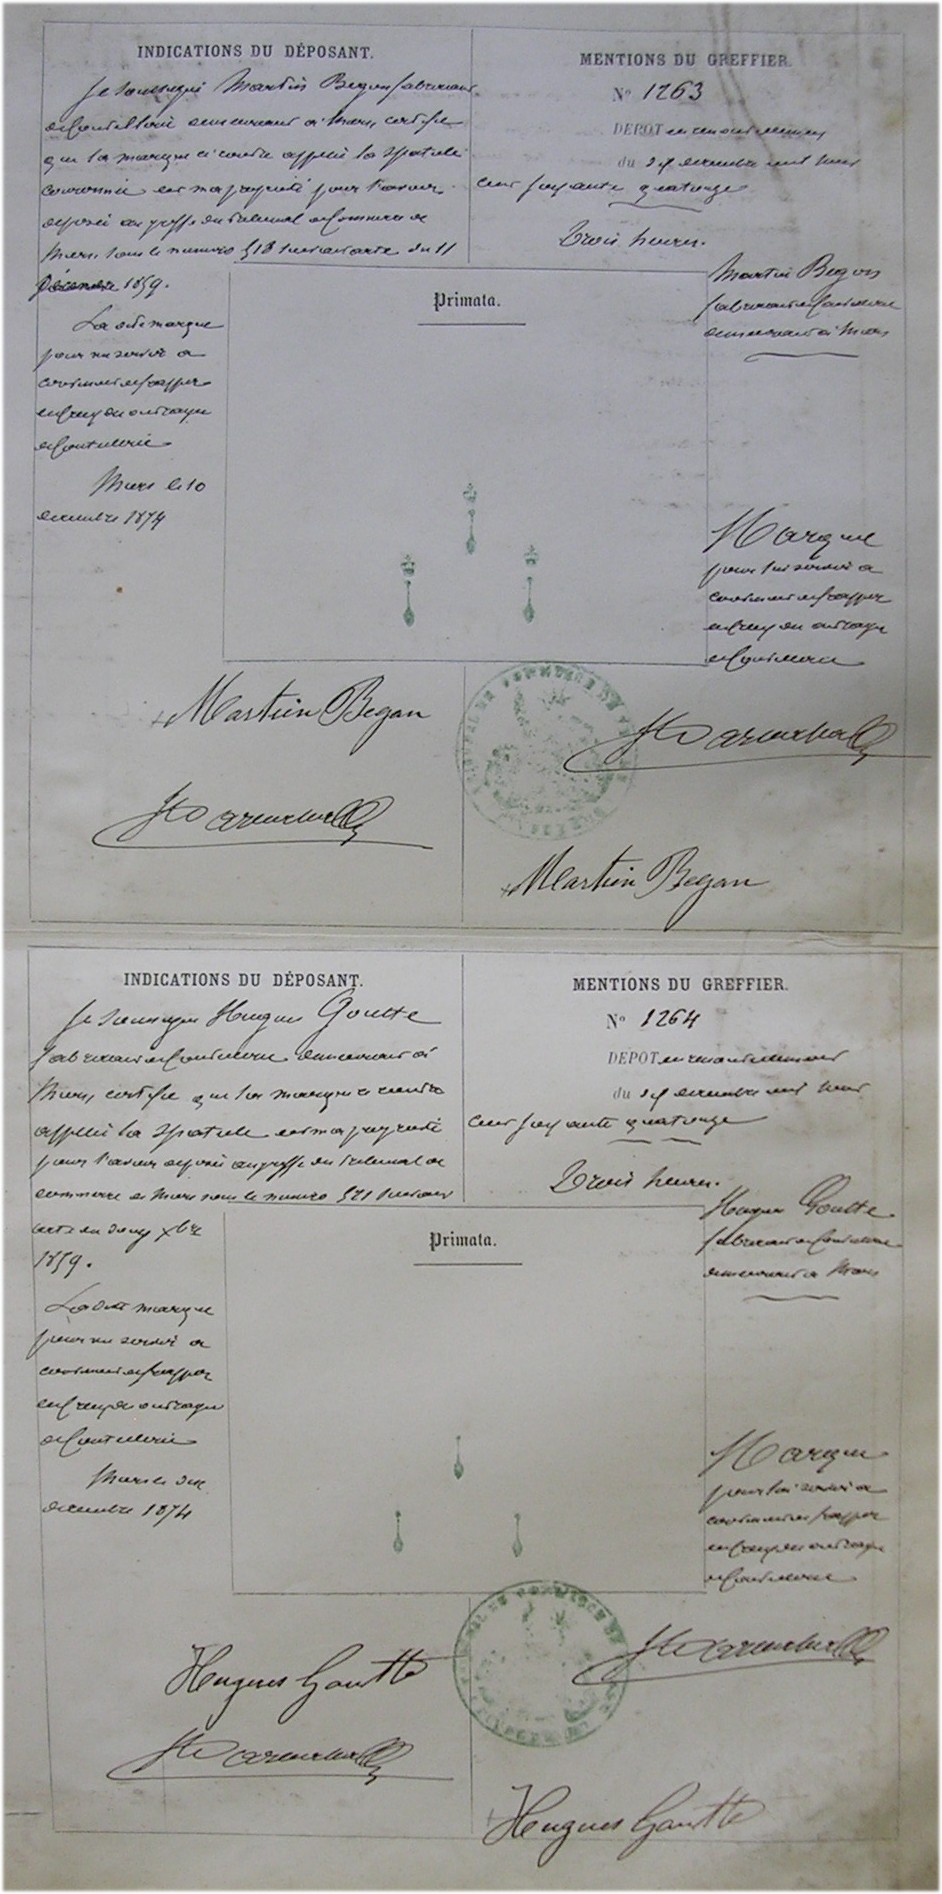 INDICATIONS DU DÉPOSANT.
Je soussigné Martin Begon fabricant
de Coutellerie demeurant à Thiers, certifie
que la marque ci contre appelée la Spatule
couronnée est ma propriété pour l'avoir
déposée au greffe du Tribunal de Commerce de
Thiers, sous le numéro 518 suivant acte du 11
Décembre 1859.
La dite marque
pour me servir à
contremarque frapper
en creux des ouvrages
de Coutellerie
Thiers le 10
décembre 1874
MENTIONS DU GREFFIER.
No 1263
DÉPOT en renouvellement
du décembre mil huit
cent soixante quatorze
Trois heures.
Martin Begon
fabricant de Coutellerie
demeurant à Thiers
Primata.
Marque
pour lui servir à
frapper
en creux des ouvrages
de Coutellerie
Martin Begon
Martin Begon
INDICATIONS DU DÉPOSANT.
Je soussigné Hugues Goutte
fabricant de Coutellerie demeurant à
Thiers, certifie que la marque ci contre
appelée la Spatule est ma propriété
pour l'avoir déposée au greffe du Tribunal de
commerce de Thiers sous le numéro 521 suivant
acte du xbre
1859.
La dite marque
pour me servir à
frapper
en creux des ouvrages
de Coutellerie
Thiers le dix
décembre 1874
MENTIONS DU GREFFIER.
No 1264
DÉPOT en renouvellement
du décembre mil huit
cent soixante quatorze
Trois heures.
Hugues Goutte
fabricant de Coutellerie
demeurant à Thiers
Primata.
Marque
pour lui servir à
frapper
en creux des ouvrages
de Coutellerie
Hugues Goutte
Hugues Goutte